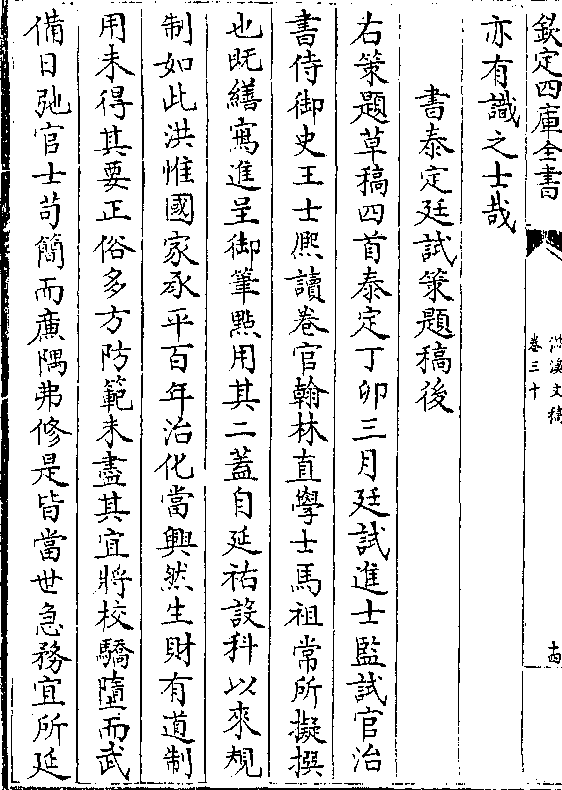 欽定四庫全書
滋溪文稿
卷三十
十四
亦有識之士哉
書泰定廷試策題稿後
右策題草稿四首泰定丁卯三月廷試進士監試官治
書侍御史王士熈讀卷官翰林直學士馬祖常所擬撰
也既繕寫進呈御筆點用其二蓋自延祐設科以來規
制如此洪惟國家承平百年治化當興然生財有道制
用未得其要正俗多方防範未盡其宜將校驕墮而武
備日弛官士苟簡而廉隅弗修是皆當世急務宜所延